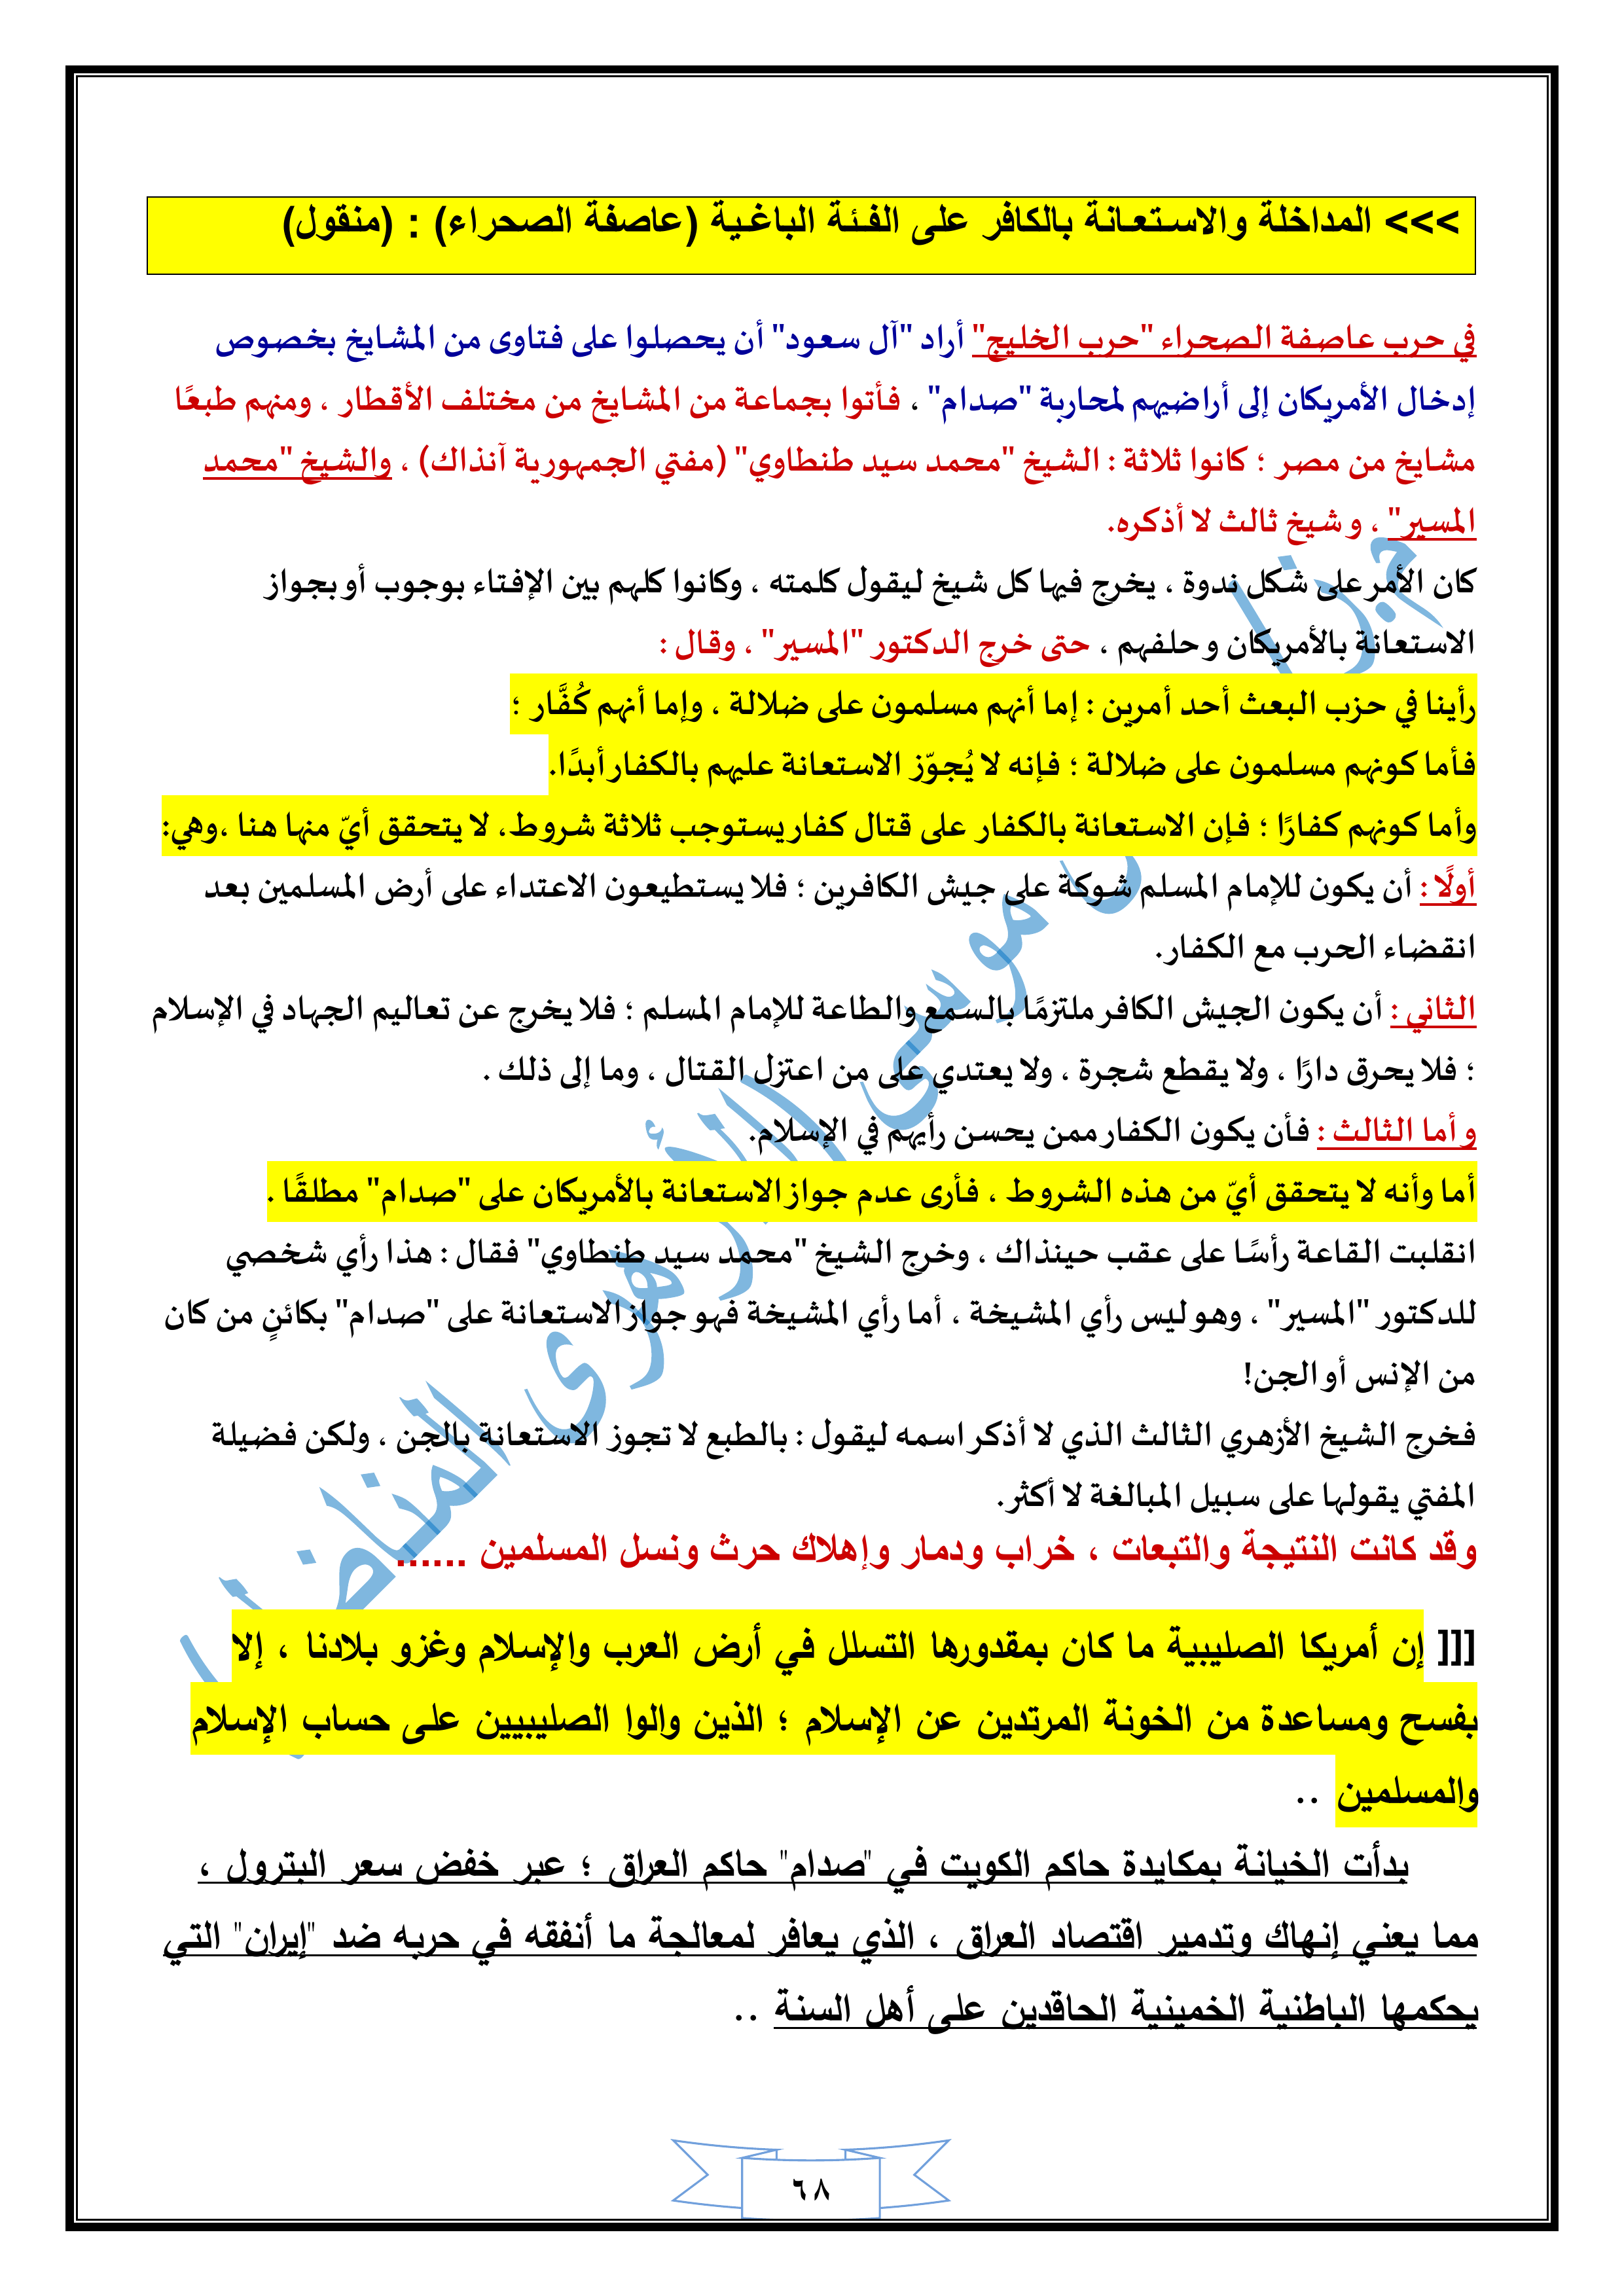 >>> المداخلة والاستعانة بالكافر على الفئة الباغية (عاصفة الصحراء) : (منقول)
في حرب عاصفة الصحراء "حرب الخليج" أراد "آل سعود" أن يحصلوا على فتاوى من المشايخ بخصوص
إدخال الأمريكان إلى أراضيهم لمحاربة "صدام" ، فأتوا بجماعة من المشايخ من مختلف الأقطار ، ومنهم طبعًا
مشايخ من مصر ؛ كانوا ثلاثة : الشيخ "محمد سيد طنطاوي" (مفتي الجمهورية آنذاك) ، والشيخ "محمد
المسير" ، وشيخ ثالث لا أذكره.
كان الأمر على شكل ندوة ، يخرج فيها كل شيخ ليقول كلمته ، وكانوا كلهم بين الإفتاء بوجوب أو بجواز
الاستعانة بالأمريكان وحلفهم ، حتى خرج الدكتور "المسير" ، وقال :
رأينا في حزب البعث أحد أمرين : إما أنهم مسلمون على ضلالة ، وإما أنهم كُفَّار ؛
فأما كونهم مسلمون على ضلالة ؛ فإنه لا يُجوّز الاستعانة عليهم بالكفار أبدًا.
وأما كونهم كفارًا ؛ فإن الاستعانة بالكفار على قتال كفار يستوجب ثلاثة شروط، لا يتحقق أيّ منها هنا ،وهي:
أولًا : أن يكون للإمام المسلم شوكة على جيش الكافرين ؛ فلا يستطيعون الاعتداء على أرض المسلمين بعد
انقضاء الحرب مع الكفار.
الثاني : أن يكون الجيش الكافر ملتزمًا بالسمع والطاعة للإمام المسلم ؛ فلا يخرج عن تعاليم الجهاد في الإسلام
؛ فلا يحرق دارًا ، ولا يقطع شجرة ، ولا يعتدي على من اعتزل القتال ، وما إلى ذلك .
وأما الثالث : فأن يكون الكفار ممن يحسن رأيهم في الإسلام.
أما وأنه لا يتحقق أيّ من هذه الشروط ، فأرى عدم جواز الاستعانة بالأمريكان على "صدام" مطلقًا .
انقلبت القاعة رأسًا على عقب حينذاك ، وخرج الشيخ "محمد سيد طنطاوي" فقال : هذا رأي شخصي
للدكتور "المسير" ، وهو ليس رأي المشيخة ، أما رأي المشيخة فهو جواز الاستعانة على "صدام" بكائنٍ من كان
من الإنس أو الجن!
فخرج الشيخ الأزهري الثالث الذي لا أذكر اسمه ليقول : بالطبع لا تجوز الاستعانة بالجن ، ولكن فضيلة
المفتي يقولها على سبيل المبالغة لا أكثر.
وقد كانت النتيجة والتبعات ، خراب ودمار وإهلاك حرث ونسل المسلمين ......
]]] إن أمريكا الصليبية ما كان بمقدورها التسلل في أرض العرب والإسلام وغزو بلادنا ، إلا
بفسح ومساعدة من الخونة المرتدين عن الإسلام ؛ الذين والوا الصليبيين على حساب الإسلام
والمسلمين ..
بدأت الخيانة بمكايدة حاكم الكويت في "صدام" حاكم العراق ؛ عبر خفض سعر البترول ،
مما يعني إنهاك وتدمير اقتصاد العراق ، الذي يعافر لمعالجة ما أنفقه في حربه ضد "إيران" التي
يحكمها الباطنية الخمينية الحاقدين على أهل السنة ..
٦٨